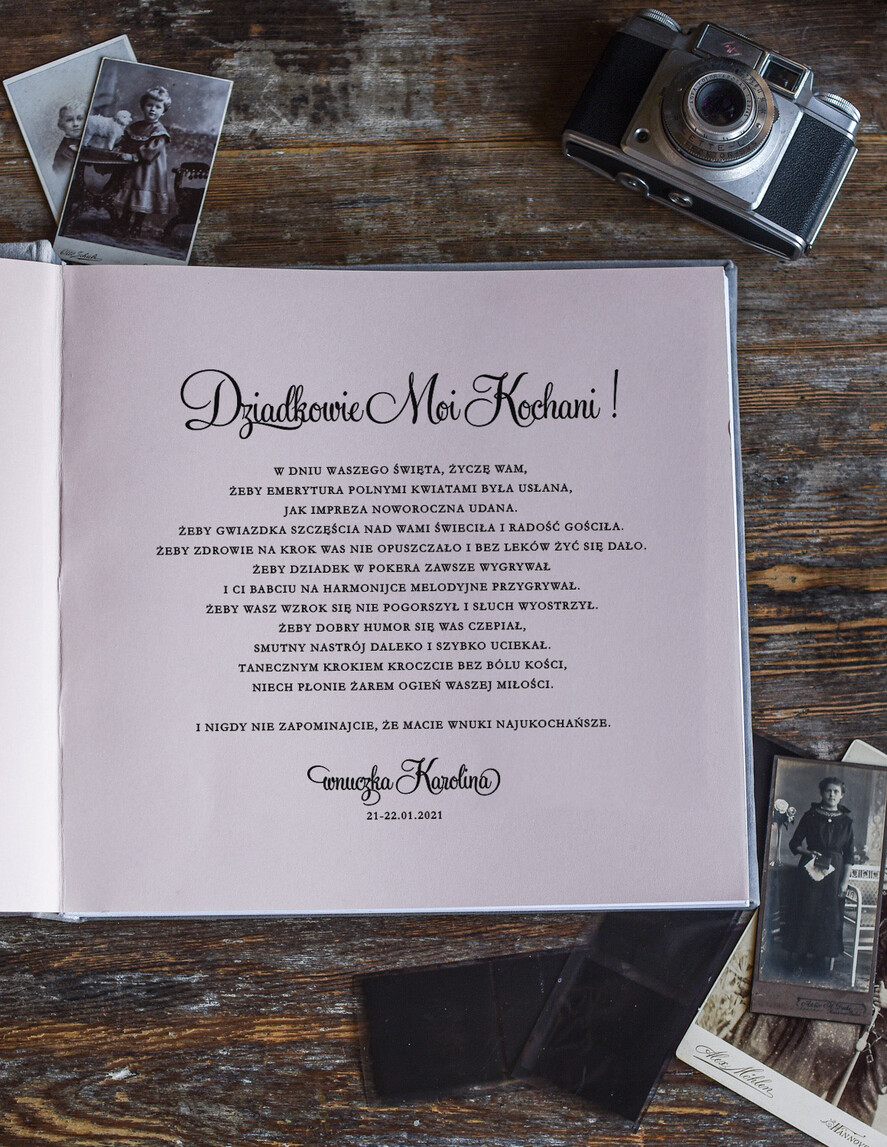 Dziadkowie Moi Kochani !
W DNIU WASZEGO ŚWIĘTA, ŻYCZĘ WAM,
ŻEBY EMERYTURA POLNYMI KWIATAMI BYŁA USŁANA,
JAK IMPREZA NOWOROCZNA UDANA.
ŻEBY GWIAZDKA SZCZĘŚCIA NAD WAMI ŚWIECIŁA I RADOŚĆ GOŚCIŁA.
ŻEBY ZDROWIE NA KROK WAS NIE OPUSZCZAŁO I BEZ LEKÓW ŻYĆ SIĘ DAŁO.
ŻEBY DZIADEK W POKERA ZAWSZE WYGRYWAŁ
I CI BABCIU NA HARMONIJCE MELODYJNE PRZYGRYWAŁ.
ŻEBY WASZ WZROK SIĘ NIE POGORSZYŁ I SŁUCH WYOSTRZYŁ.
ŻEBY DOBRY HUMOR SIĘ WAS CZEPIAŁ,
SMUTNY NASTRÓJ DALEKO I SZYBKO UCIEKAŁ.
TANECZNYM KROKIEM KROCZCIE BEZ BÓLU KOŚCI,
NIECH PŁONIE ŻAREM OGIEŃ WASZEJ MIŁOŚCI.
I NIGDY NIE ZAPOMINAJCIE, ŻE MACIE WNUKI NAJUKOCHAŃSZE.
wnuczka Karolina
21-22.01.2021